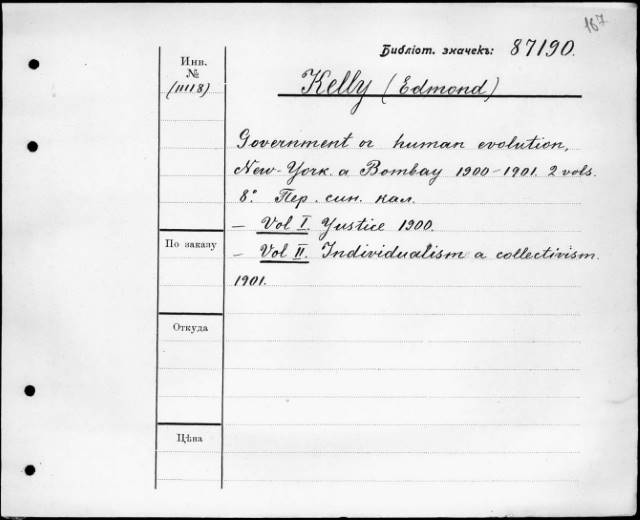 167
Библіот. значекъ: 87190.
Инв.
№
(11118)
Kelly (Edmond)
Government or human evolution,
New-York. a Bombay 1900-1901. 2 vols.
8°. Пер. син. кал.
— Vol I. Yustice 1900.
— Vol II. Individualism a collectivism.
1901.
По заказу
Откуда
Цѣна